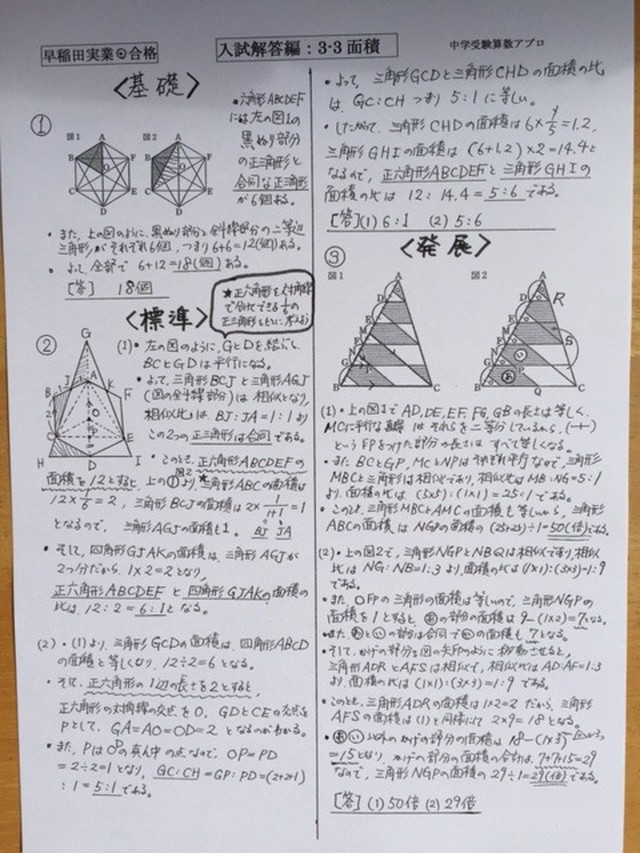 早稲田実業 合格
入試解答編:3-3 面積
中学受験算数アプロ
〈基礎〉
①
図1 図2
・六角形ABCDEF
には左の図1の
黒ぬり部分
の正三角形と
合同な正三角形
が6個ある。
・また、上の図のように、黒ぬり部分と斜線部分の二等辺
三角形がそれぞれ6個、つまり6+6=12(個)ある。
・よって全部で 6+12=18(個)ある。
[答] 18個
★正六角形を対角線
で分けてできる1/6の
正三角形をもとに
〈標準〉
②
(1)・左の図のように、GとDを結ぶと、
BCとGDは平行になる。
・よって、三角形BCJと三角形AGJ
(図の斜線部分)は相似となり、
相似比は BJ:JA=1:1より
この2つの正三角形は合同である。
・このとき、正六角形ABCDEFの
面積を12とすると、上の①図2より三角形ABCの面積は
12×1/6=2、三角形BCJの面積は2×1/(1+1)=1
となるので、三角形AGJの面積も1。
BJ JA
・そして、四角形GJAKの面積は、三角形AGJが
2つ分だから、1×2=2となり、
正六角形ABCDEFと四角形GJAKの面積の
比は、12:2=6:1となる。
(2)・(1)より、三角形GCDの面積は、四角形ABCD
の面積と等しくなり、12÷2=6となる。
・そして、正六角形の1辺の長さを2とすると、
正六角形の対角線の交点をO、GDとCEの交点を
Pとして、GA=AO=OD=2となるのがわかる。
・また、PはODの真ん中の点なので、OP=PD
=2÷2=1となり、GC:CH=GP:PD=(2+2+1)
:1=5:1である。
・よって、三角形GCDと三角形CHDの面積の比
は、GC:CHつまり5:1に等しい。
・したがって、三角形CHDの面積は6×1/5=1.2、
三角形GHIの面積は(6+1.2)×2=14.4と
なるので、正六角形ABCDEFと三角形GHIの
面積の比は 12:14.4=5:6である。
[答](1) 6:1 (2) 5:6
〈発展〉
③
図1 図2
(1)・上の図よりAD,DE,EF,FG,GBの長さは等しく、
MCに平行な直線はそれらを二等分しているから、
という印をつけた部分の長さはすべて等しくなる。
・またBCとGP、MCとNPはそれぞれ平行なので、三角形
MBCと三角形は相似であり、相似比はMB:NG=5:1
より、面積の比は(5×5):(1×1)=25:1である。
・このとき、三角形MBCとAMCの面積も等しいから、三角形
ABCの面積はNGPの面積の(25+25)÷1=50(倍)である。
(2)・上の図2で、三角形NGPとNBQは相似であり、相似
比はNG:NB=1:3より、面積の比は(1×1):(3×3)=1:9
である。
・また、○印の三角形の面積は等しいので、三角形NGPの
面積を1とすると、あの部分の面積は9-(1×2)=7となる。
・またあといの部分は合同でいの面積も7となる。
・そして、かげの部分を図の矢印のように移動させると、
三角形ADRとAFSは相似で、相似比はAD:AF=1:3
より、面積の比は(1×1):(3×3)=1:9である。
・このとき、三角形ADRの面積は1×2=2だから、三角形
AFSの面積は(1)と同様にて2×9=18となる。
・あ、い以外のかげの部分の面積は18-(1×3)
=15となり、かげの部分の面積の合計は、7+7+15=29
なので、三角形NGPの面積の29÷1=29(倍)である。
[答](1) 50倍 (2) 29倍